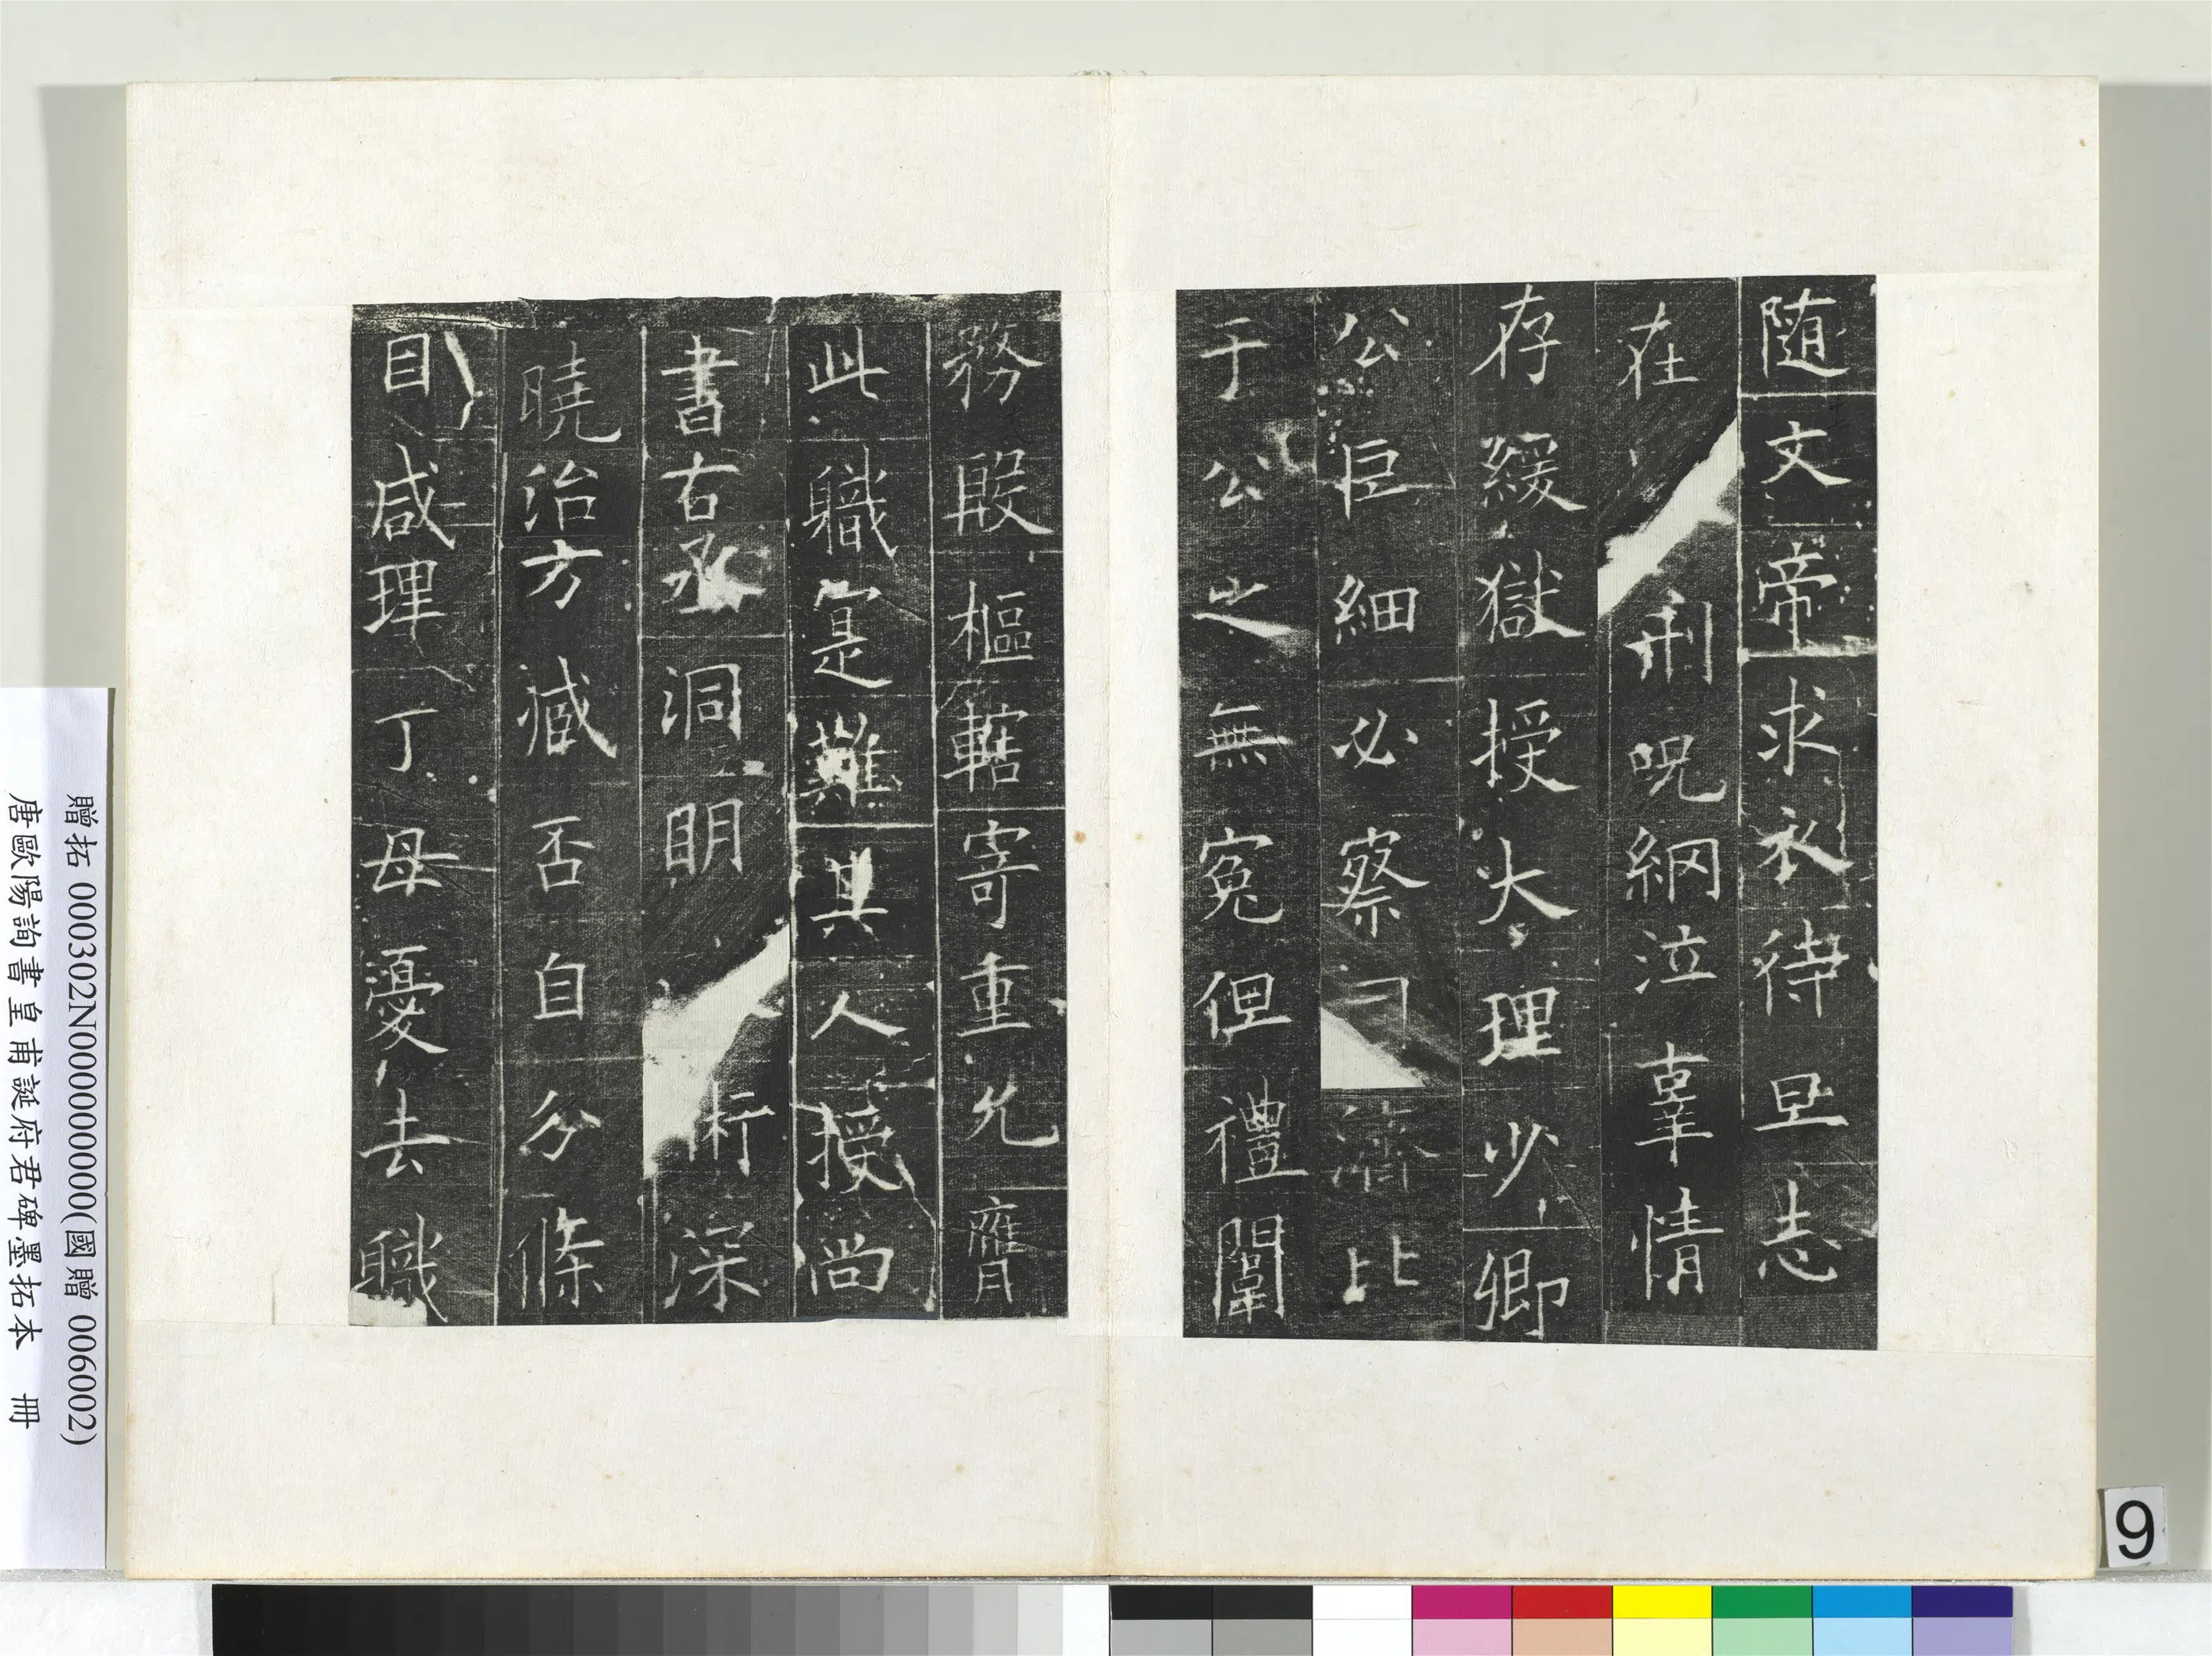 随文帝求衣待旦志
在刑呪網泣辜情
存緩獄授大理少卿
公巨細必察同濟比
于公之無冤但禮闈
務殷樞轄寄重允膺
此職寔難其人授尚
書右丞洞明政術深
曉治方臧否自分條
目咸理丁母憂去職
贈拓 000302N000000000(國贈 006002)
唐歐陽詢書皇甫誕府君碑墨拓本 冊
9